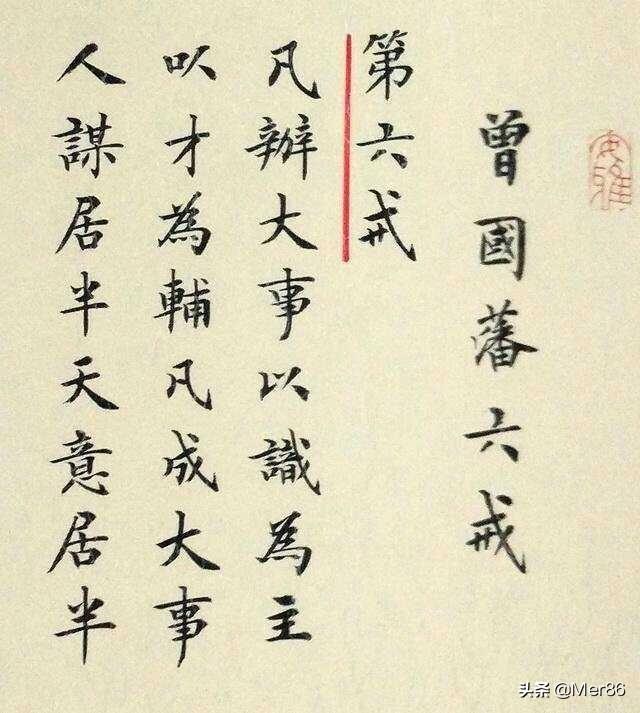 曾國藩六戒
第六戒
凡辦大事以識為主
以才為輔凡成大事
人謀居半天意居半
头条 @Mer86